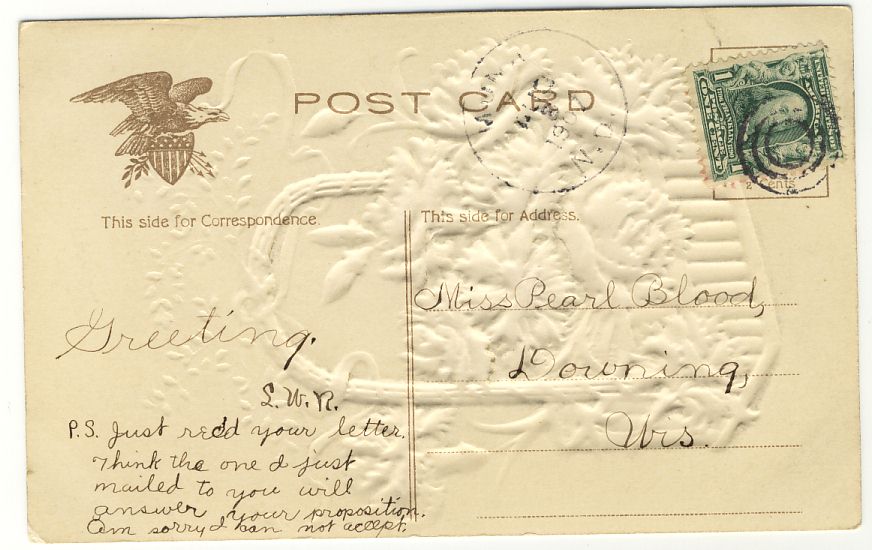 POST CARD
190
N.D.
1
2 cents
This side for Correspondence.
This side for Address.
Miss Pearl Blood,
Downing,
Wis.
Greeting.
L.W.N.
P.S. Just rec'd your letter.
Think the one I just
mailed to you will
answer your proposition.
Am sorry I can not accept.